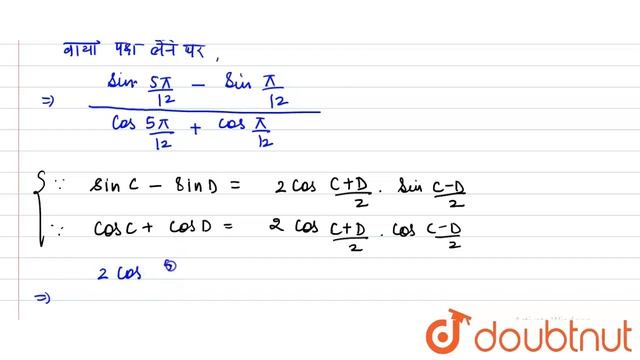 बायाँ पक्ष लेने पर,
⇒ (sin 5π/12 − sin π/12) / (cos 5π/12 + cos π/12)
∵ sin C − sin D = 2 cos C+D/2 . sin C−D/2
∵ cos C + cos D = 2 cos C+D/2 . cos C−D/2
2 cos
⇒
doubtnut